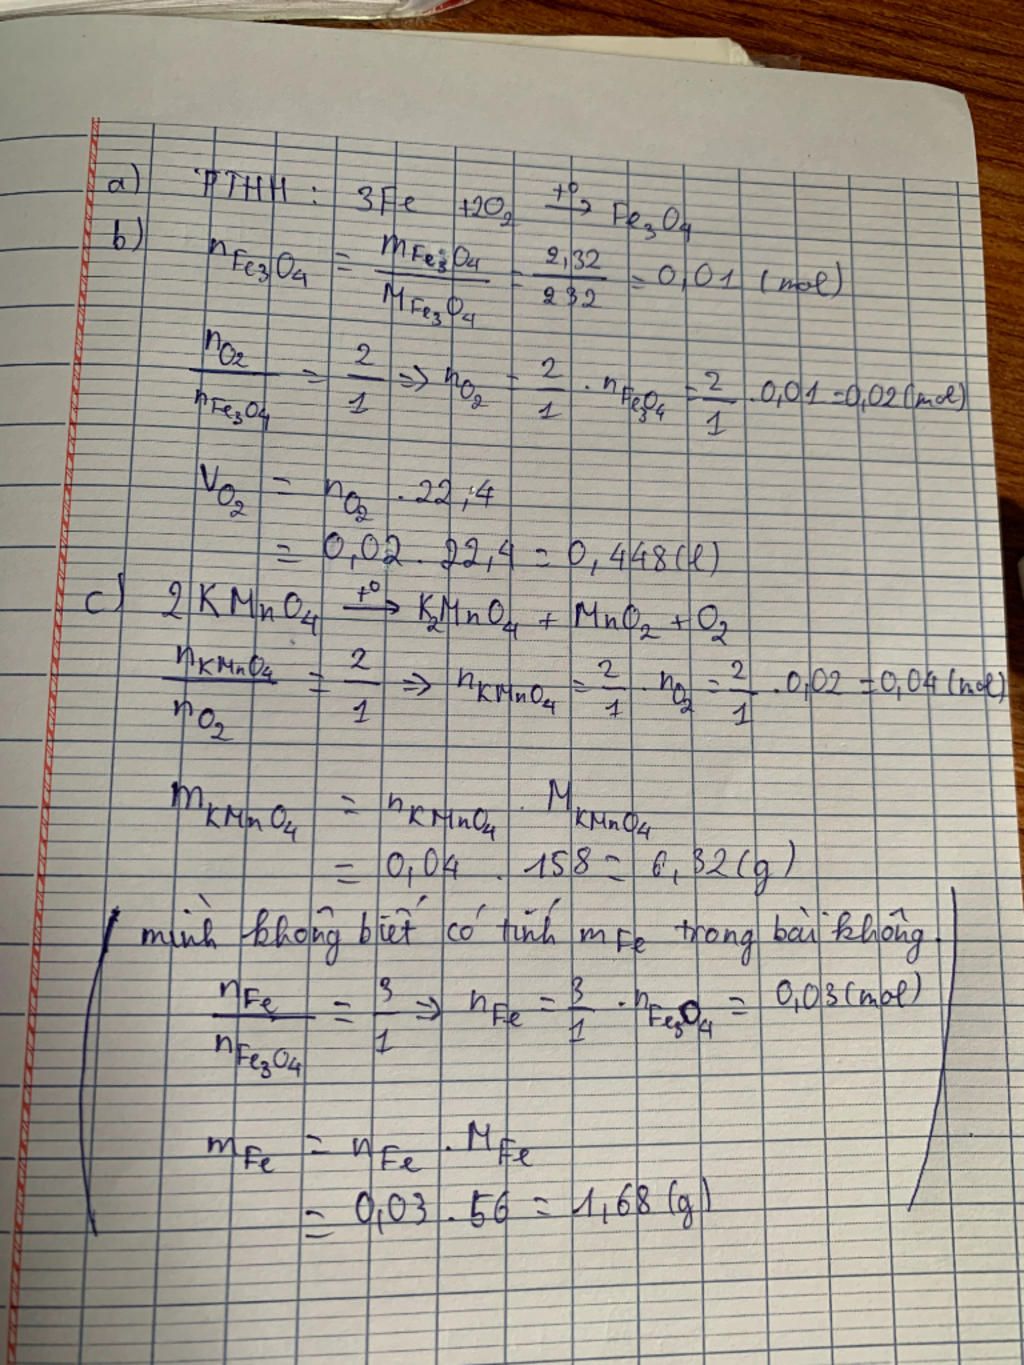 a) PTHH : 3Fe +2O₂ →(t⁰) Fe₃O₄
b) n Fe₃O₄ = m Fe₃O₄ / M Fe₃O₄ = 2,32 / 232 = 0,01 (mol)
n O₂ / n Fe₃O₄ = 2/1 => n O₂ = 2/1 . n Fe₃O₄ = 2/1 . 0,01 = 0,02 (mol)
V O₂ = n O₂ . 22,4
= 0,02 . 22,4 = 0,448 (l)
c) 2KMnO₄ →(t⁰) K₂MnO₄ + MnO₂ + O₂
n KMnO₄ / n O₂ = 2/1 => n KMnO₄ = 2/1 . n O₂ = 2/1 . 0,02 = 0,04 (mol)
m KMnO₄ = n KMnO₄ . M KMnO₄
= 0,04 . 158 = 6,32 (g)
( mình không biết có tính m Fe trong bài không.
n Fe / n Fe₃O₄ = 3/1 => n Fe = 3/1 . n Fe₃O₄ = 0,03 (mol)
m Fe = n Fe . M Fe
= 0,03 . 56 = 1,68 (g) )